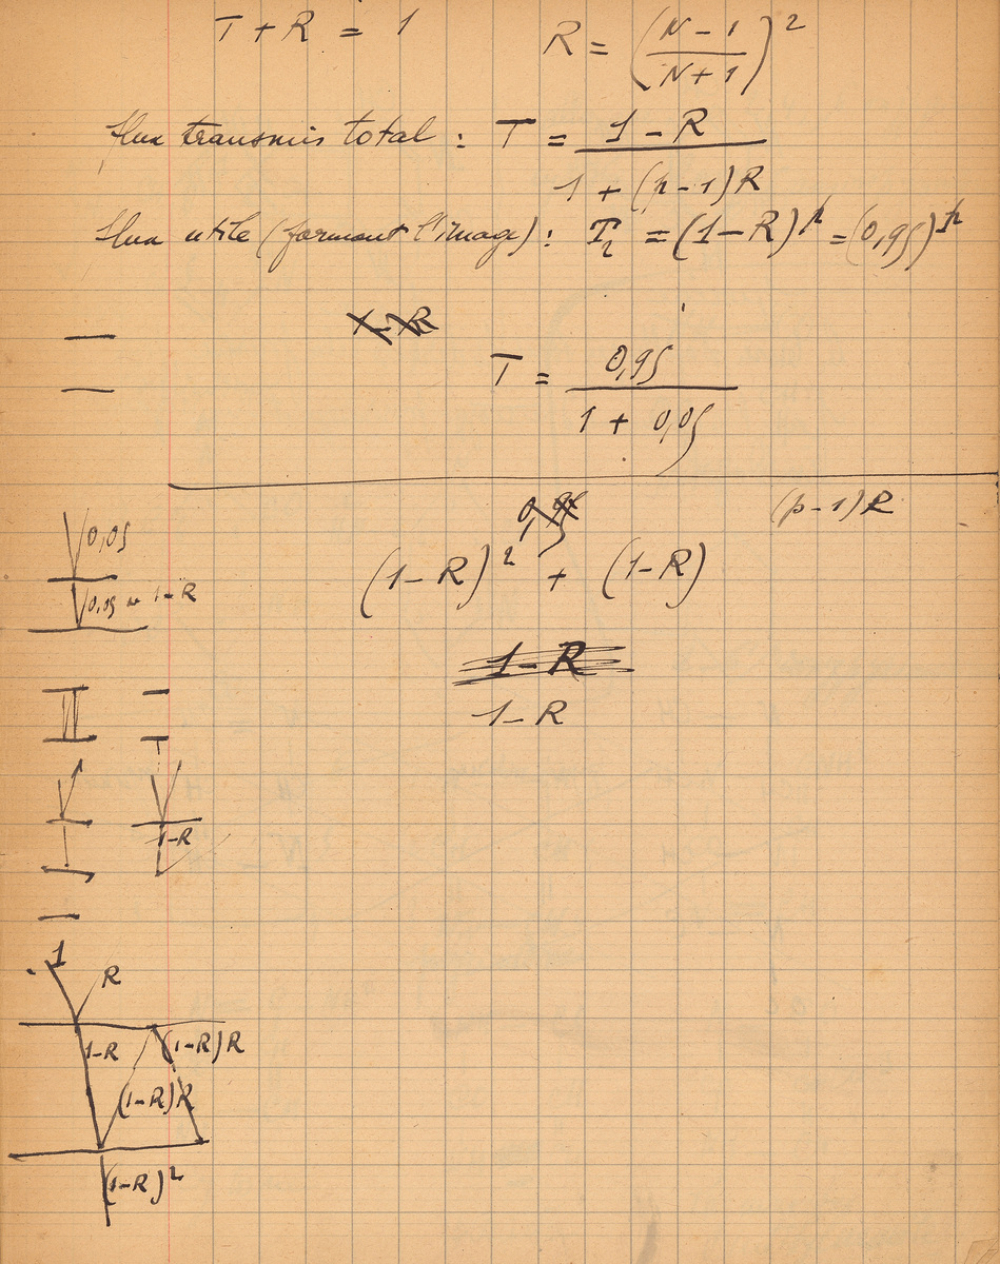 T + R = 1
R = (N - 1 / N + 1)²
flux transmis total : T = 1 - R / 1 + (p - 1)R
flux utile (formant l'image) : T₁ = (1 - R)ᵖ = (0,95)ᵖ
1 - R
T = 0,95 / 1 + 0,05
0,95
(p - 1)R
(1 - R)² + (1 - R)
1 - R
1 - R
0,05
0,95 = 1 - R
1 - R
1
R
1-R
(1-R)R
(1-R)R
(1-R)²